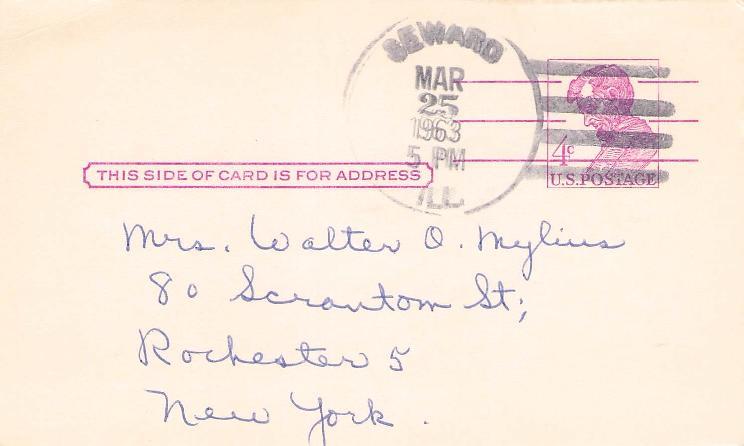 SEWARD
MAR
25
1963
5 PM
ILL.
4¢
U.S. POSTAGE
THIS SIDE OF CARD IS FOR ADDRESS
Mrs. Walter O. Mylius
80 Scrantom St;
Rochester 5
New York.